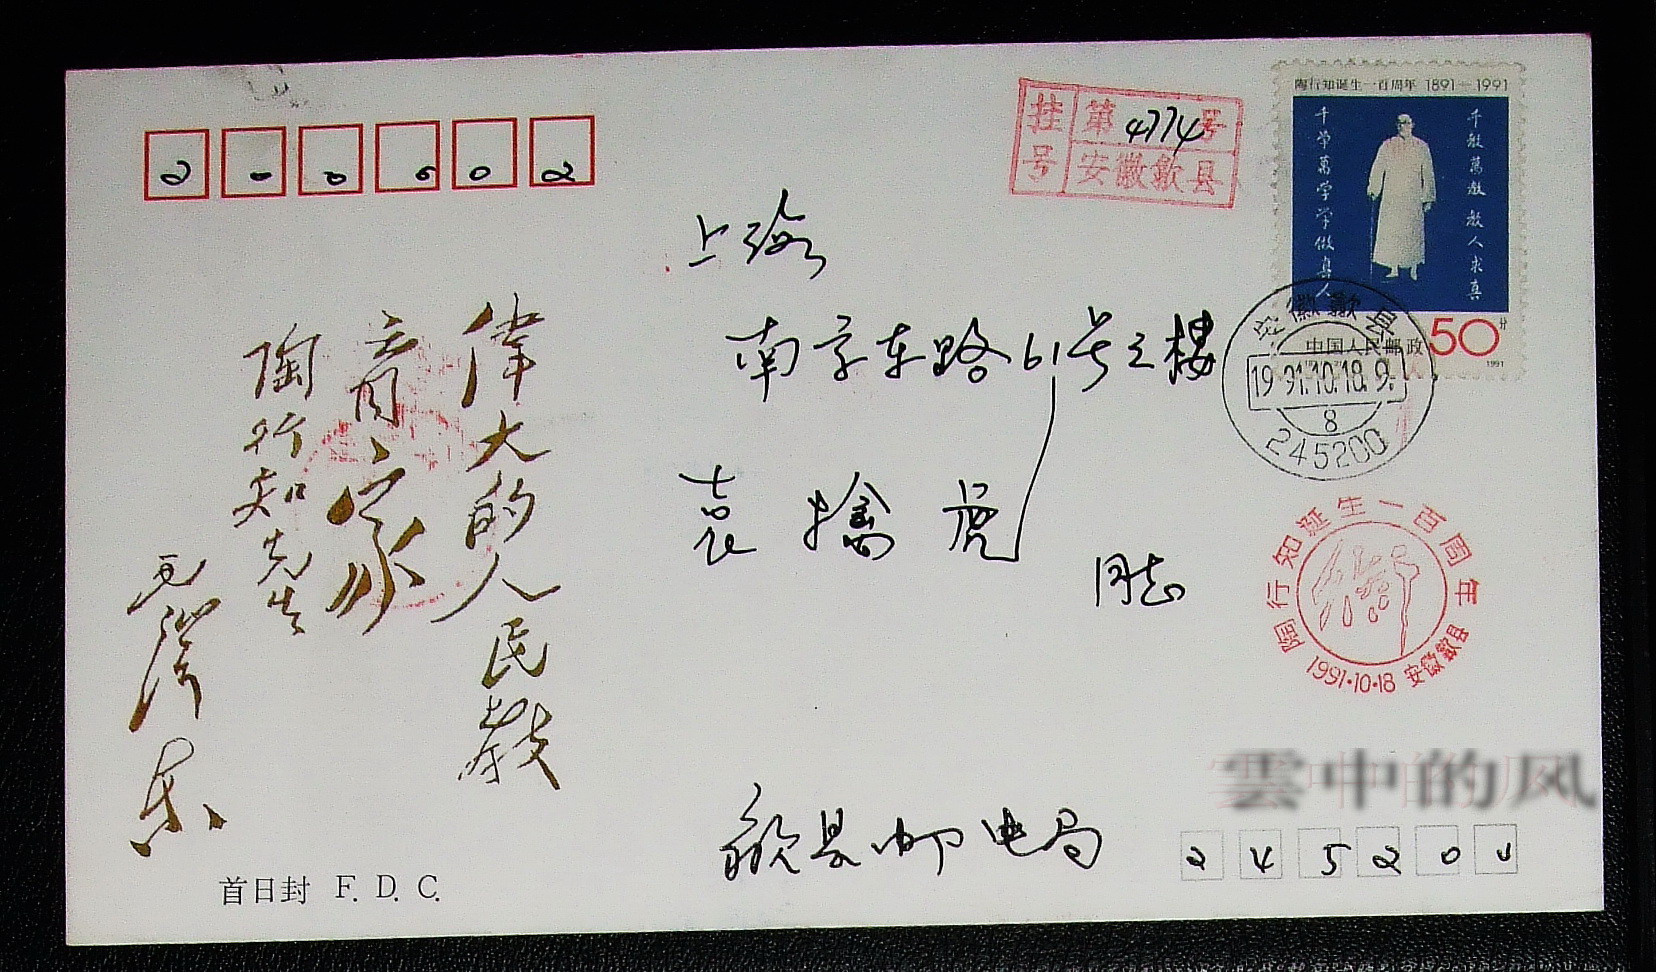 200002
挂号
第4774号
安徽歙县
陶行知诞生一百周年 1891—1991
千教萬教教人求真
千学萬学学做真人
中国人民邮政 50分
1991
安徽歙县
1991.10.18.9.
8
245200
上海
南京东路61号之楼
袁擒虎 同志
偉大的人民教
育家
陶行知先生
毛澤东
陶行知诞生一百周年
1991·10·18 安徽歙县
雲中的风
歙县邮电局
245200
首日封 F. D. C.